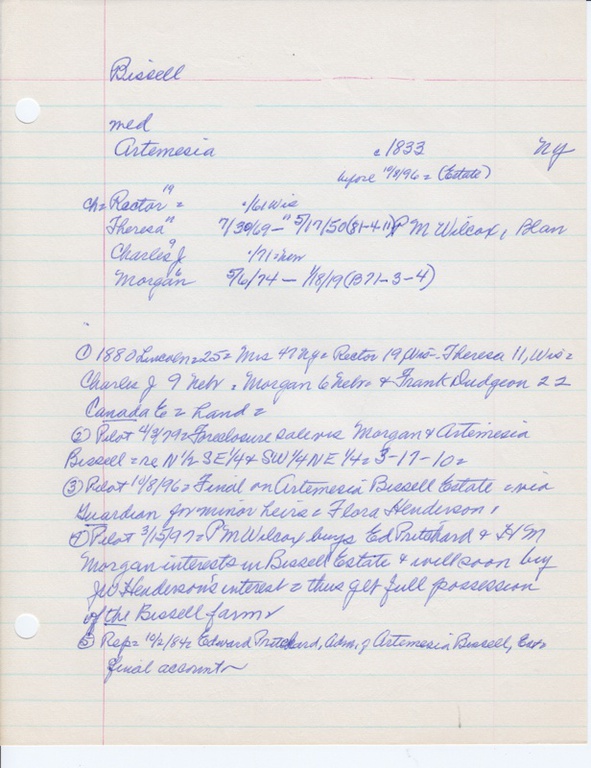 Bissell
med
Artemesia c 1833 NY
before 10/8/96 = (Estate)
ch = Rector 19 = c/61 Wis
Theresa 11 7/30/69 - 5/17/50 (81-4-11) P M Wilcox, Blan
Charles J 9 c/71 = Neb
Morgan 6 5/6/74 - 1/18/19 (B71-3-4)
① 1880 Lincoln = 25 = Mrs 47 NY = Rector 19, Wis = Theresa 11, Wis =
Charles J 9 Nebr = Morgan 6 Nebr = & Frank Dudgeon 22
Canada E = Land =
② Pilot 4/3/79 = Foreclosure sale vs Morgan & Artimesia
Bissell = re N 1/2 SE 1/4 & SW 1/4 NE 1/4 = 3-17-10 =
③ Pilot 10/8/96 = Final on Artemesia Bissell Estate = via
Guardian for minor heirs = Flora Henderson,
④ Pilot 3/15/97 = P M Wilcox buys Ed Pritchard & H M
Morgan interests in Bissell Estate & will soon buy
JW Henderson's interest = thus get full possession
of the Bissell farm
⑤ Rep = 10/2/84 = Edward Pritchard, Adm. of Artemesia Bissell, Est =
final account